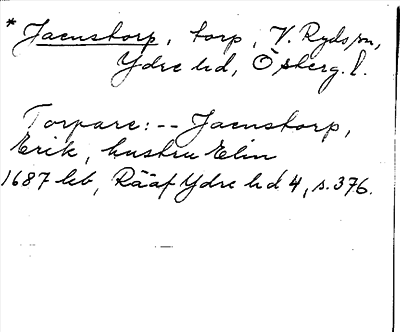 * Jaenstorp, torp, V. Ryds sn,
Ydre hd, Östberg. l.
Torpare: -- Jaenstorp,
Erik, hustru Elin
1687 leb, Rääf Ydre hd 4, s. 376.